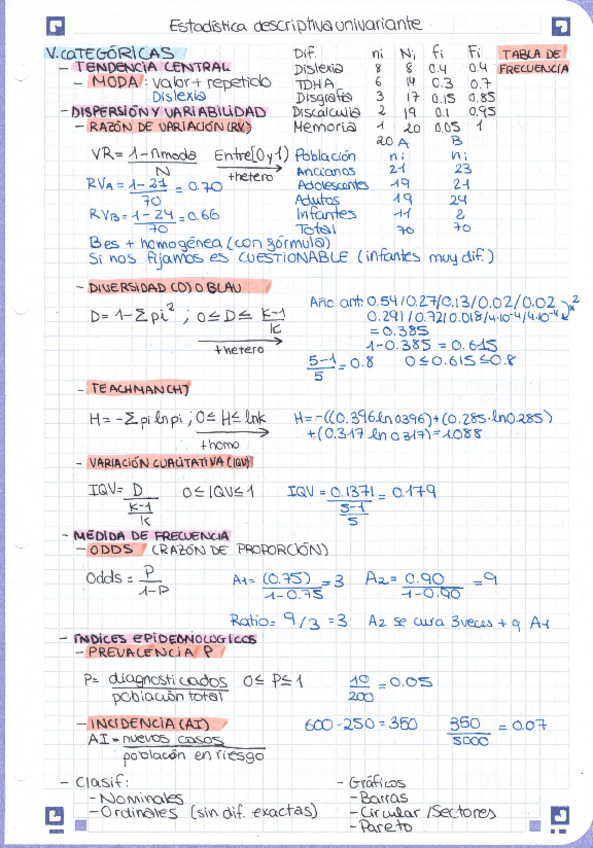 Estadística descriptiva univariante
V. CATEGÓRICAS
- TENDENCIA CENTRAL
- MODA: valor + repetido
Dislexia
Dif. ni Ni fi Fi TABLA DE FRECUENCIA
Dislexia 8 8 0.4 0.4
TDHA 6 14 0.3 0.7
Disgrafía 3 17 0.15 0.85
Discalculia 2 19 0.1 0.95
Memoria 1 20 0.05 1
20
- DISPERSIÓN Y VARIABILIDAD
- RAZÓN DE VARIACIÓN (RV)
VR = 1 - nmoda / N Entre [0 y 1]
+hetero
RVA = 1 - 21 / 70 = 0.70
RVB = 1 - 24 / 70 = 0.66
A B
Población ni ni
Ancianos 21 23
Adolescentes 19 21
Adultos 19 24
Infantes 11 2
Total 70 70
B es + homogénea (con fórmula)
Si nos fijamos es CUESTIONABLE (infantes muy dif.)
- DIVERSIDAD (D) O BLAU
D = 1 - Σpi² ; 0 ≤ D ≤ k-1 / k
+hetero
Año ant: 0.54/0.27/0.13/0.02/0.02 x²
0.291/0.72/0.018/4·10⁻⁴/4·10⁻⁴
= 0.385
1 - 0.385 = 0.615
5-1 / 5 = 0.8 0 ≤ 0.615 ≤ 0.8
- TEACHMAN (H)
H = -Σ pi ln pi ; 0 ≤ H ≤ lnk
+homo
H = -((0.396 ln 0396) + (0.285 · ln 0.285)
+ (0.317 ln 0.317) = 1.088
- VARIACIÓN CUALITATIVA (IQV)
IQV = D / k-1 / k 0 ≤ IQV ≤ 1 IQV = 0.1371 / 5-1 / 5 = 0.179
- MEDIDA DE FRECUENCIA
- ODDS (RAZÓN DE PROPORCIÓN)
Odds = P / 1-P A1 = (0.75) / 1-0.75 = 3 A2 = 0.90 / 1-0.90 = 9
Ratio = 9/3 = 3 A2 se cura 3 veces + q A1
- ÍNDICES EPIDEMNOLOGICOS
- PREVALENCIA P
P = diagnosticados / población total 0 ≤ P ≤ 1 10 / 200 = 0.05
- INCIDENCIA (AI)
AI = nuevos casos / población en riesgo
600 - 250 = 350 350 / 5000 = 0.07
- Clasif:
- Nominales
- Ordinales (sin dif. exactas)
- Gráficos
- Barras
- Circular / Sectores
- Pareto